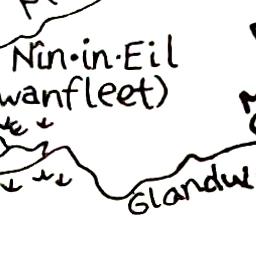 Nin·in·Eil
wanfleet)
Glandu